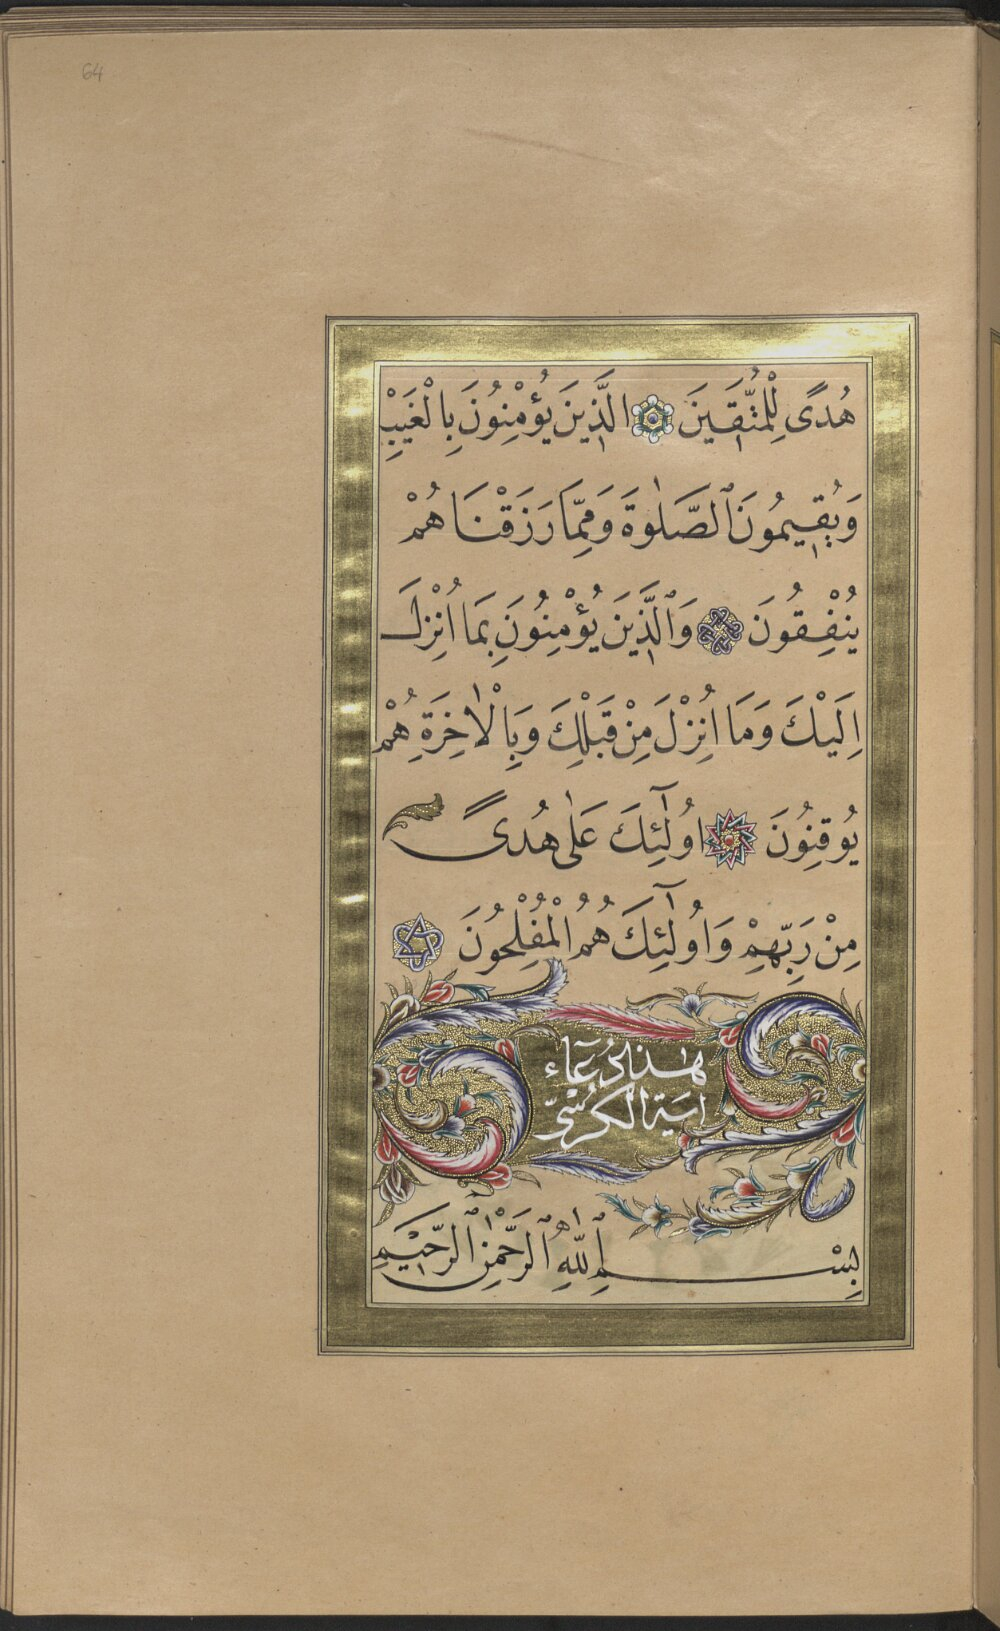 64
هُدًى لِلْمُتَّقِينَ الَّذِينَ يُؤْمِنُونَ بِالْغَيْبِ
وَيُقِيمُونَ ٱلصَّلٰوةَ وَمِمَّا رَزَقْنَاهُمْ
يُنْفِقُونَ وَٱلَّذِينَ يُؤْمِنُونَ بِمَا اُنْزِلَ
اِلَيْكَ وَمَا اُنْزِلَ مِنْ قَبْلِكَ وَبِالْاٰخِرَةِ هُمْ
يُوقِنُونَ اُولٰٓئِكَ عَلٰى هُدًى
مِنْ رَبِّهِمْ وَاُولٰٓئِكَ هُمُ الْمُفْلِحُونَ
هٰذَا دُعَآءِ
اٰيَةَ الْكُرْسِىِّ
بِسْمِ ٱللّٰهِ ٱلرَّحْمٰنِ ٱلرَّحِيْمِ